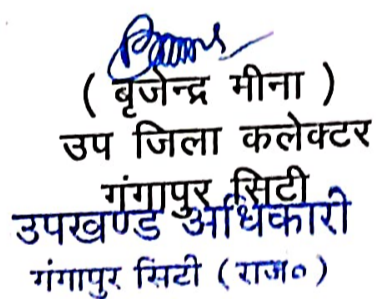 ( बृजेन्द्र मीना )
उप जिला कलेक्टर
गंगापुर सिटी
उपखण्ड अधिकारी
गंगापुर सिटी ( राज० )